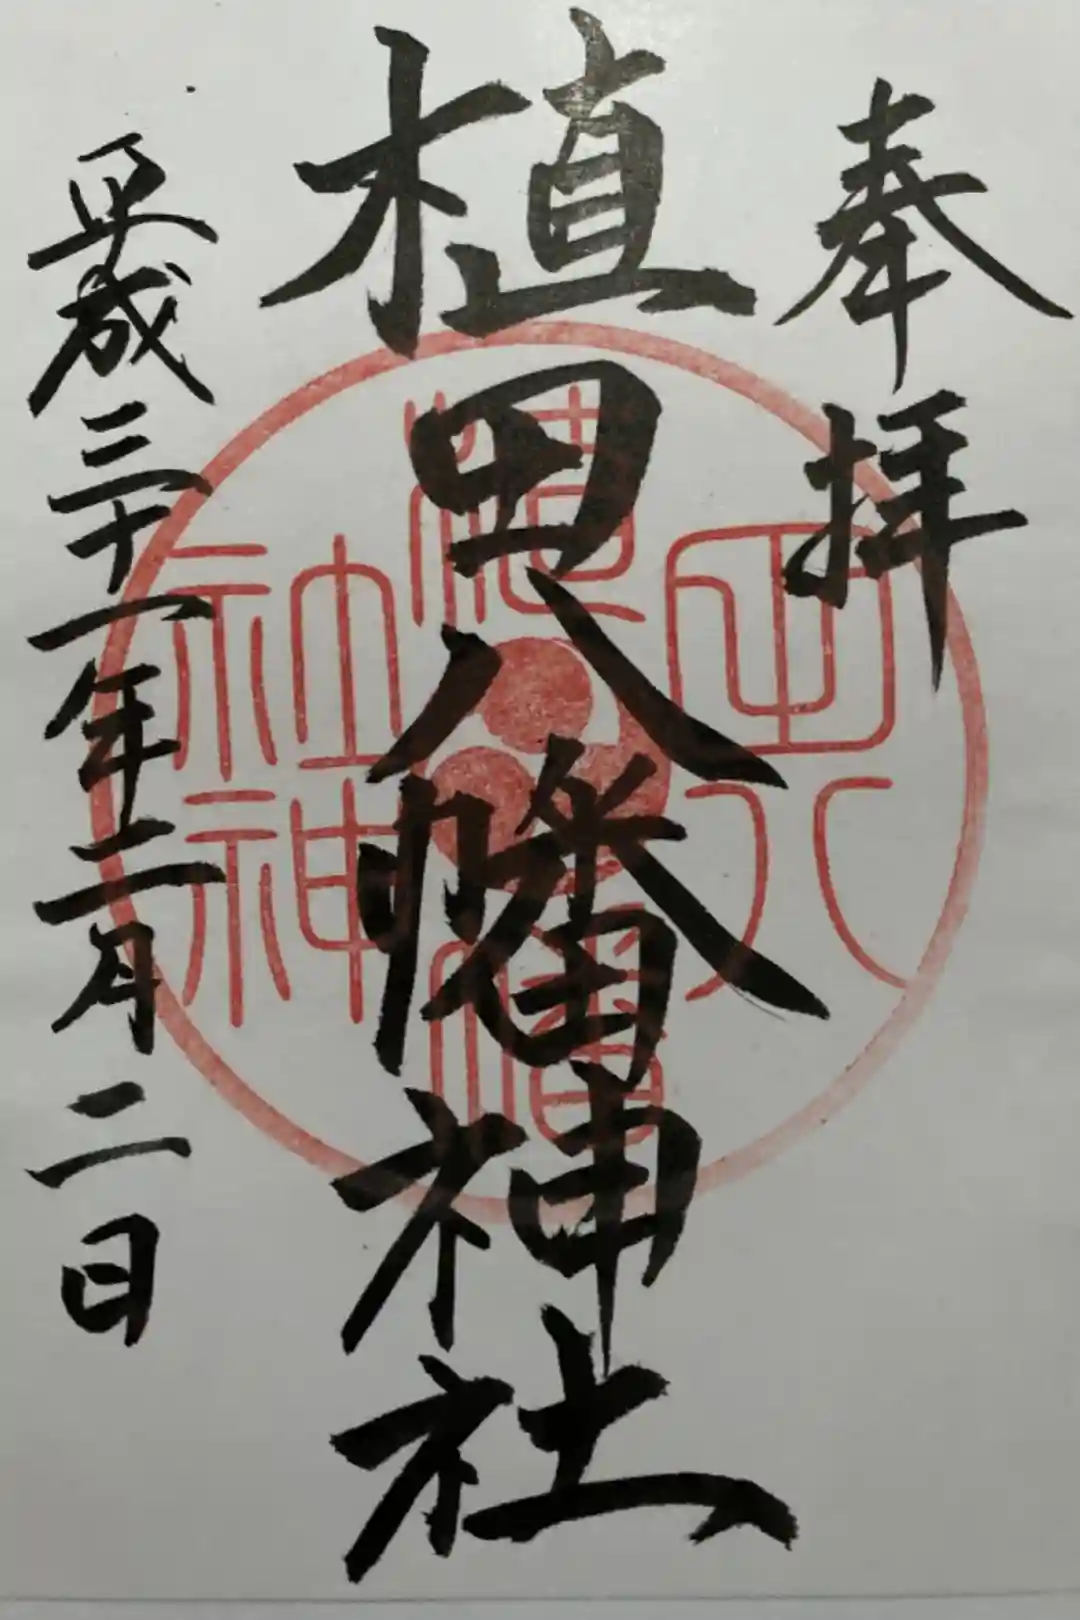 奉拝
植田八幡神社
平成三十一年二月二日
植田八幡神社